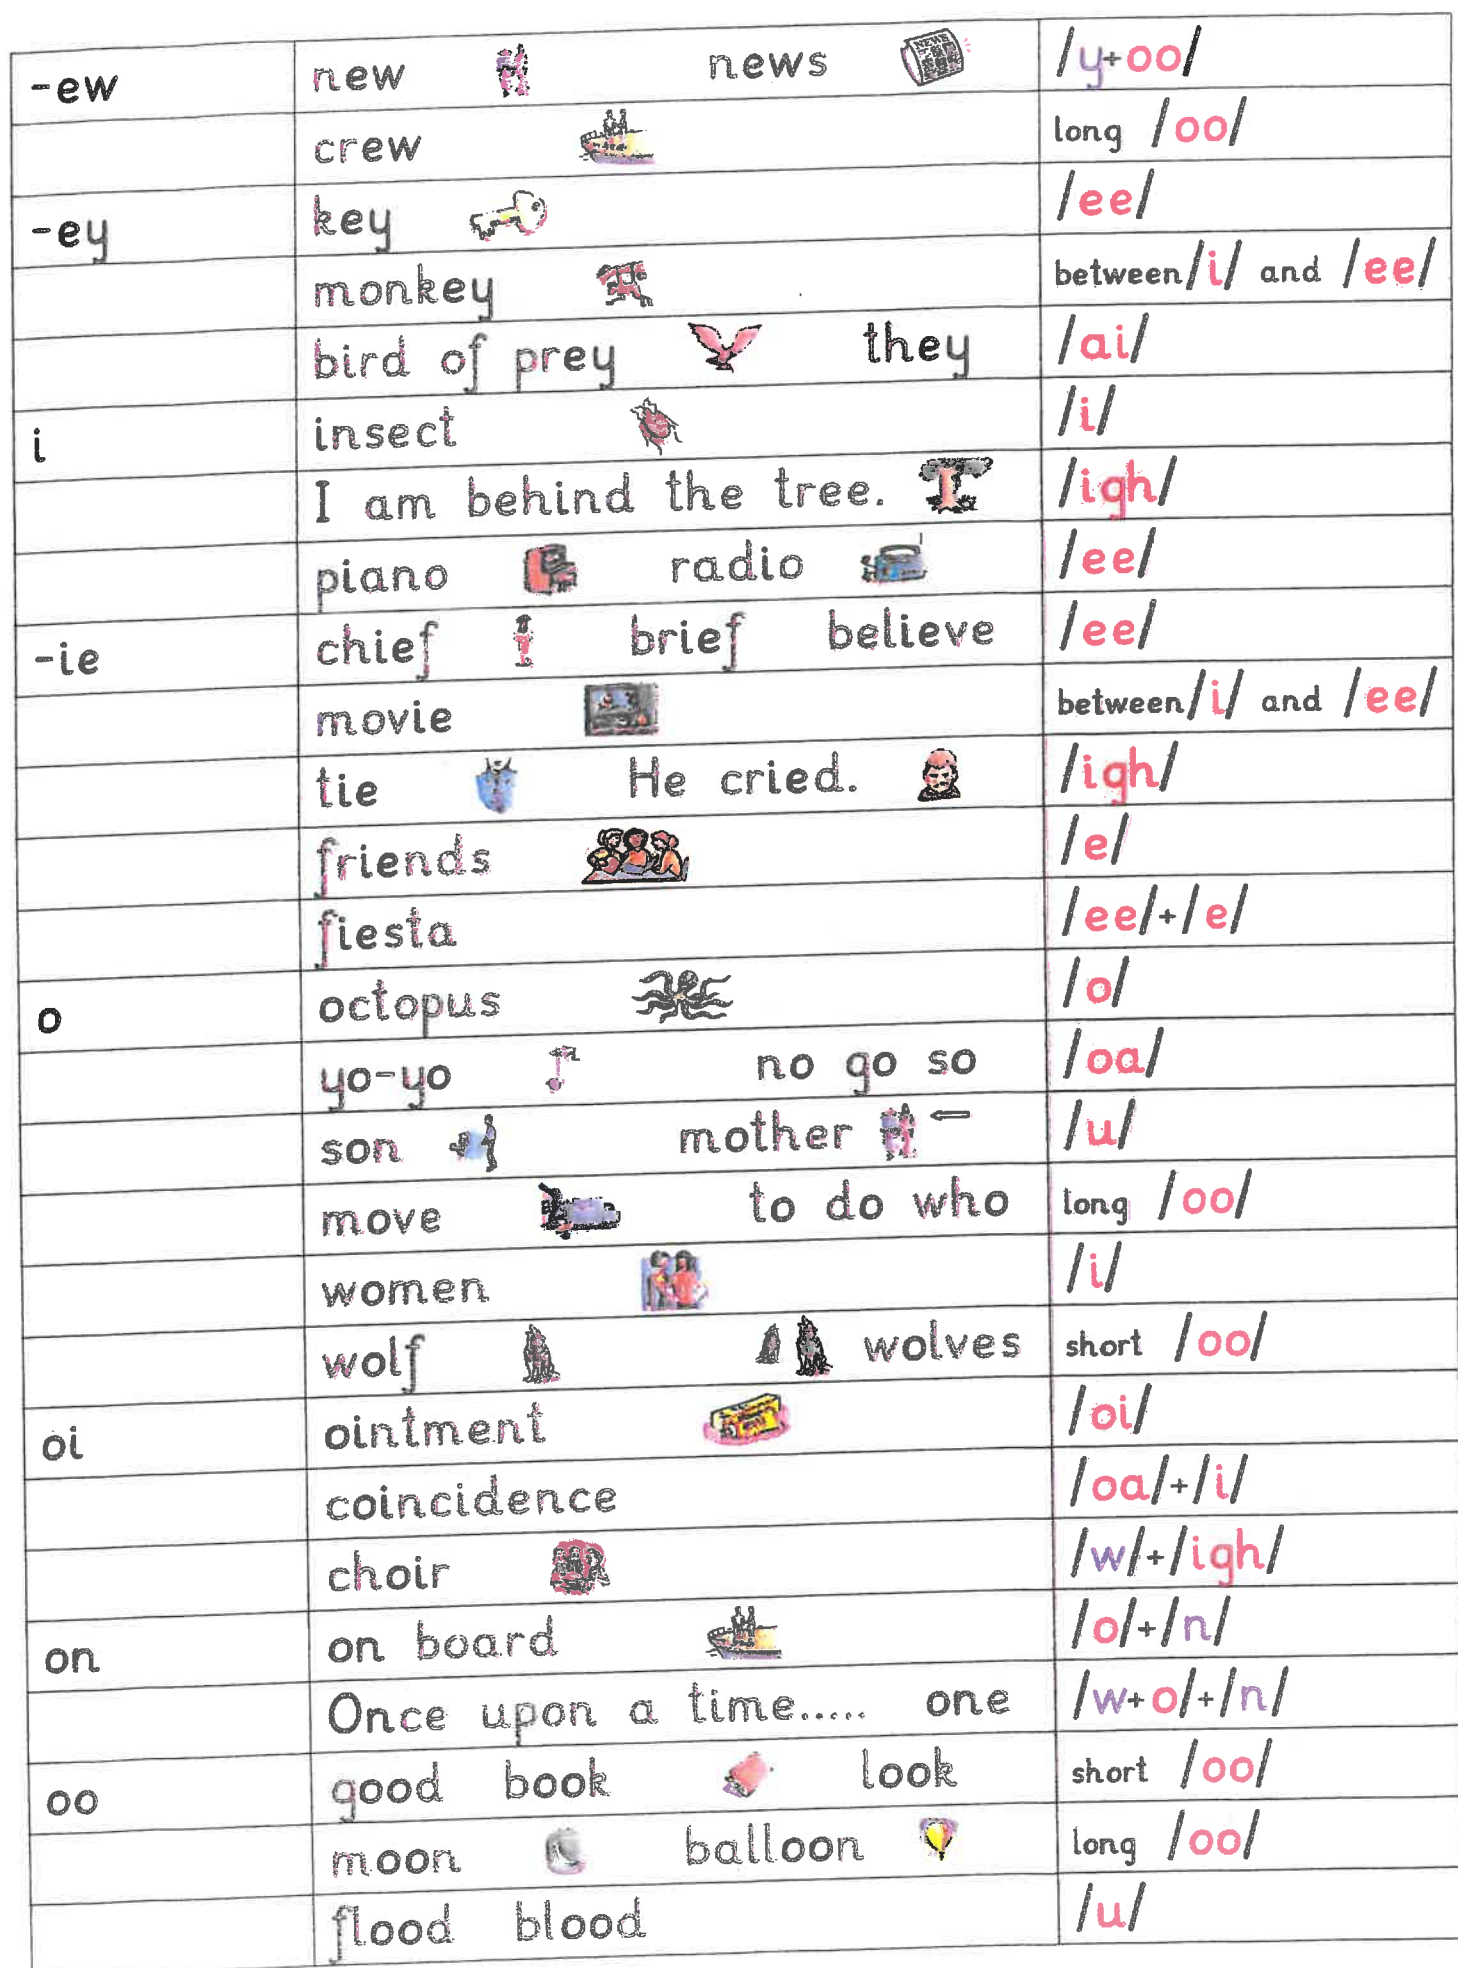 -ew new news /y+oo/
crew long /oo/
-ey key /ee/
monkey between /i/ and /ee/
bird of prey they /ai/
i insect /i/
I am behind the tree. /igh/
piano radio /ee/
-ie chief brief believe /ee/
movie between /i/ and /ee/
tie He cried. /igh/
friends /e/
fiesta /ee/+/e/
o octopus /o/
yo-yo no go so /oa/
son mother /u/
move to do who long /oo/
women /i/
wolf wolves short /oo/
oi ointment /oi/
coincidence /oa/+/i/
choir /w/+/igh/
on on board /o/+/n/
Once upon a time..... one /w+o/+/n/
oo good book look short /oo/
moon balloon long /oo/
flood blood /u/